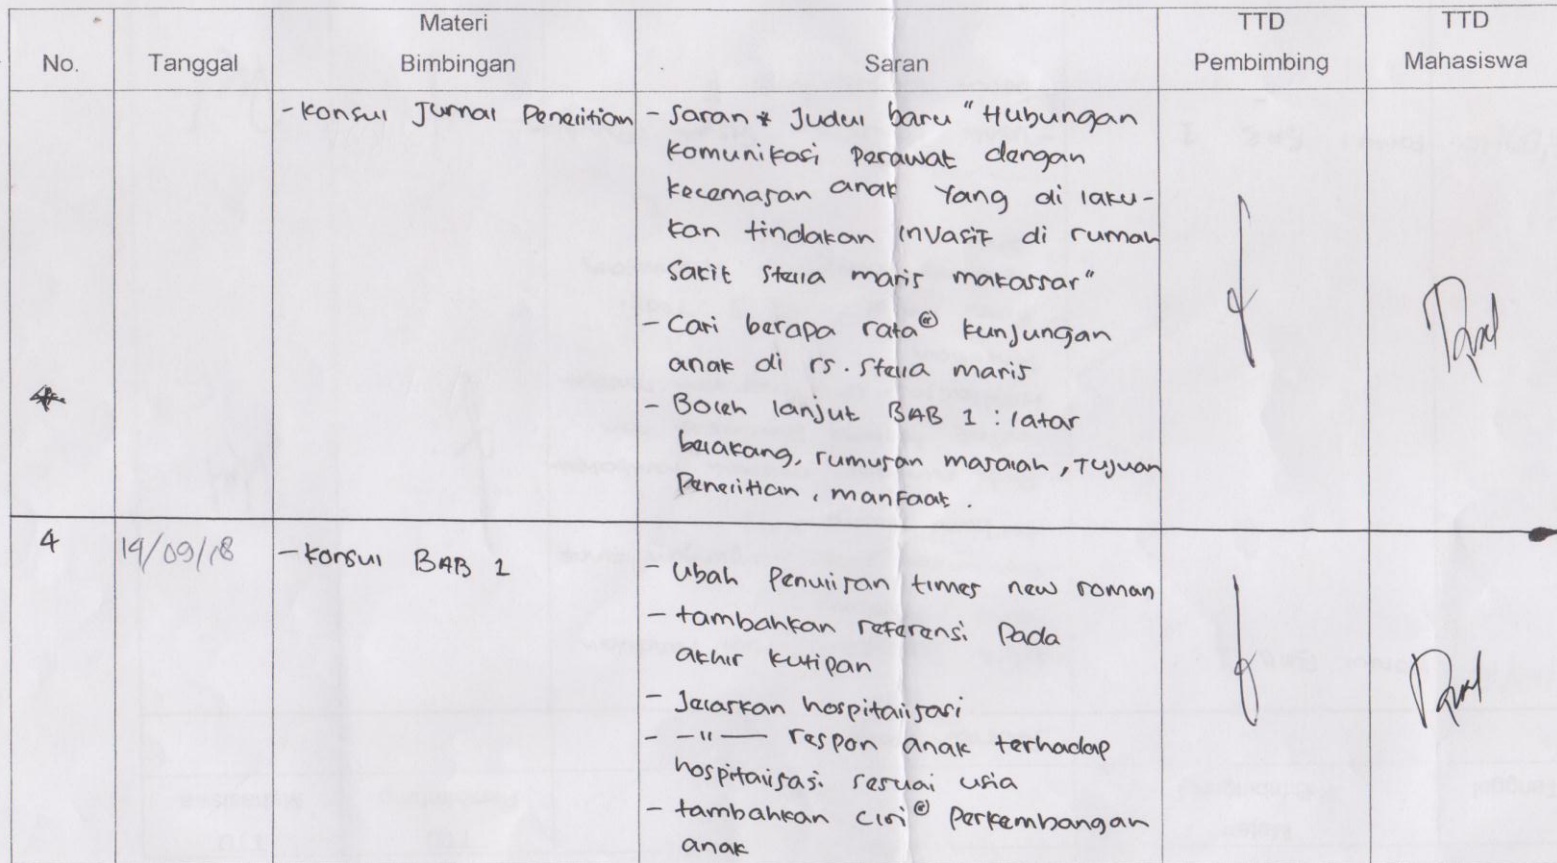 No. Tanggal Materi Bimbingan Saran TTD Pembimbing TTD Mahasiswa
- Konsul Jurnal Penelitian
- Saran Judul baru "Hubungan
komunikasi perawat dengan
kecemasan anak Yang di laku-
kan tindakan invasif di rumah
sakit stella maris makassar"
- Cari berapa rata² kunjungan
anak di rs. stella maris
- Boleh lanjut BAB 1 : latar
belakang, rumusan masalah, Tujuan
Penelitian, manfaat.
4 19/09/18 - Konsul BAB 1
- Ubah Penulisan times new roman
- tambahkan referensi Pada
akhir kutipan
- Jelaskan hospitalisasi
- -"- respon anak terhadap
hospitalisasi sesuai usia
- tambahkan ciri² Perkembangan
anak